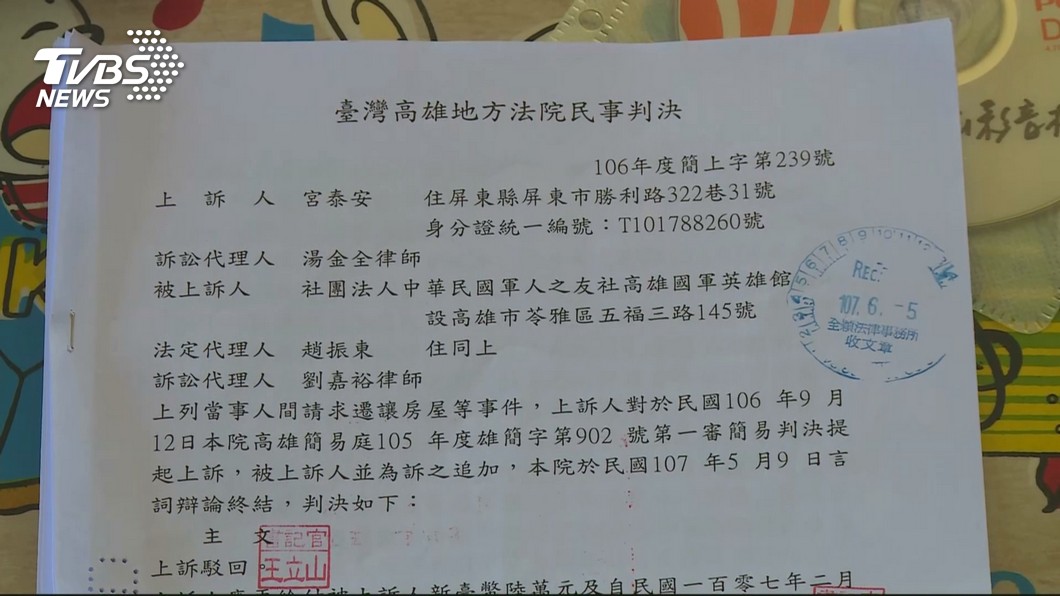 TVBS
NEWS
臺灣高雄地方法院民事判決
106年度簡上字第239號
上 訴 人 宮泰安 住屏東縣屏東市勝利路322巷31號
身分證統一編號：T101788260號
訴訟代理人 湯金全律師
被上訴人 社團法人中華民國軍人之友社高雄國軍英雄館
設高雄市苓雅區五福三路145號
法定代理人 趙振東 住同上
訴訟代理人 劉嘉裕律師
上列當事人間請求遷讓房屋等事件，上訴人對於民國106 年9 月
12日本院高雄簡易庭105 年度雄簡字第902 號第一審簡易判決提
起上訴，被上訴人並為訴之追加，本院於民國107 年5 月9 日言
詞辯論終結，判決如下：
主 文
上訴駁回。
新臺幣陸萬元及自民國一百零七年二月
書記官
王立山
REC.
107. 6. -5
法律事務所
收文章